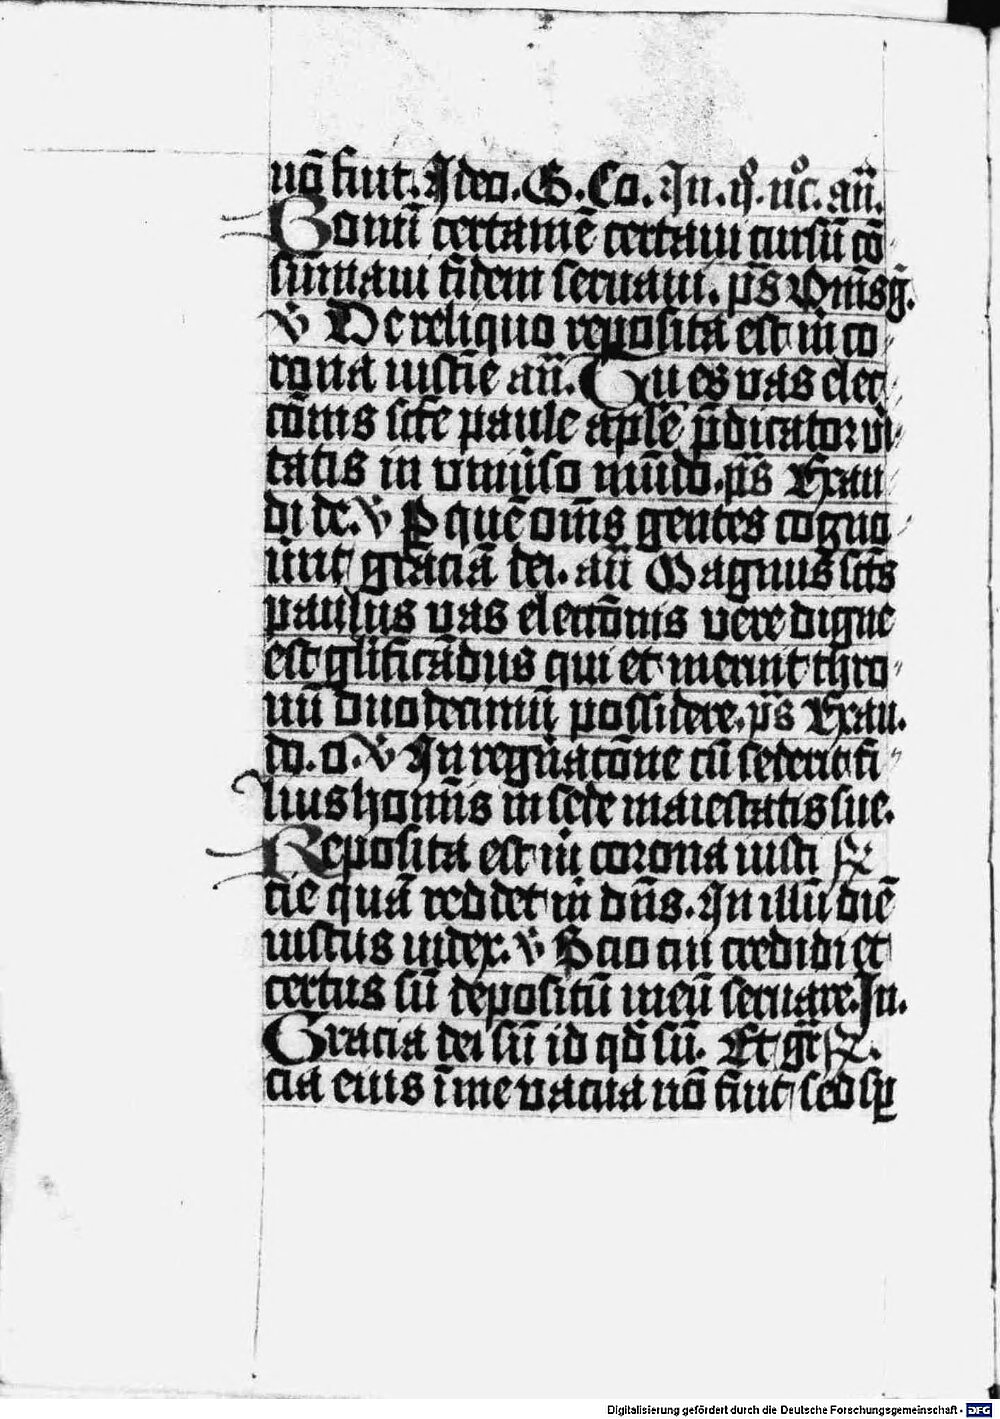 nō fuit. Ideo. G. Co. In. iij. nōc. añ.
Bonū certamē certaui cursū cō
sūmaui fidem seruaui. ps̄ Om̄s g̃.
℣ De reliquo reposita est m̄ co
rona iusticīe añ. Tu es vas elec
cōnis scē̄ paule apl̄e p̄dicator vi
tatis in vniuso mūdo. ps̄ Exau
di dc. ℣ Per quē om̄s gentes cogno
uūt graciā dei. añ Magnus sc̄ts
paulus vas eleccōnis vere digne
est gl̄ificādus qui et meruit thro
nū duodecimū possidere. ps̄ Exau.
do. o. ℣ In regn̄acōne cū sederit fi
lius homīs in sede maiestatis sue.
Reposita est m̄ corona iusti
cie quā reddet m̄ dn̄s. In illū diē
iustus iudex. ℣ Scio cui credidi et
certus sū depositū meū seruare. In.
Gracia dei sū id qd̄ sū. Et gr̄
cia eius ī me vacua nō fuit sed sp̄
Digitalisierung gefördert durch die Deutsche Forschungsgemeinschaft - DFG